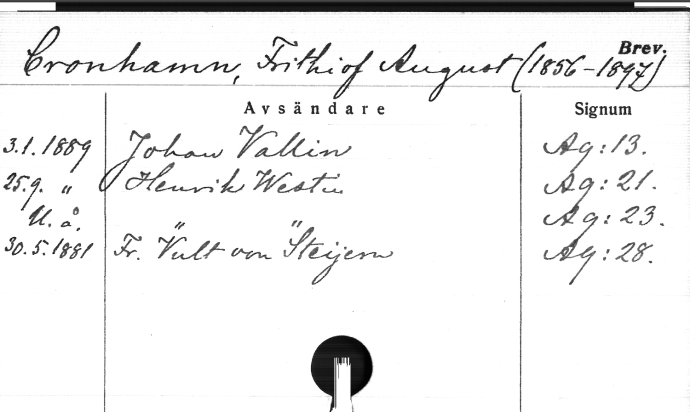 Brev.
Cronhamn, Frithiof August (1856-1897)
Avsändare Signum
3.1.1889 Johan Vallin Ag:13.
25.9. " Henrik Westin Ag:21.
U.å. " " Ag:23.
30.5.1881 Fr. Vult von Steijern Ag:28.